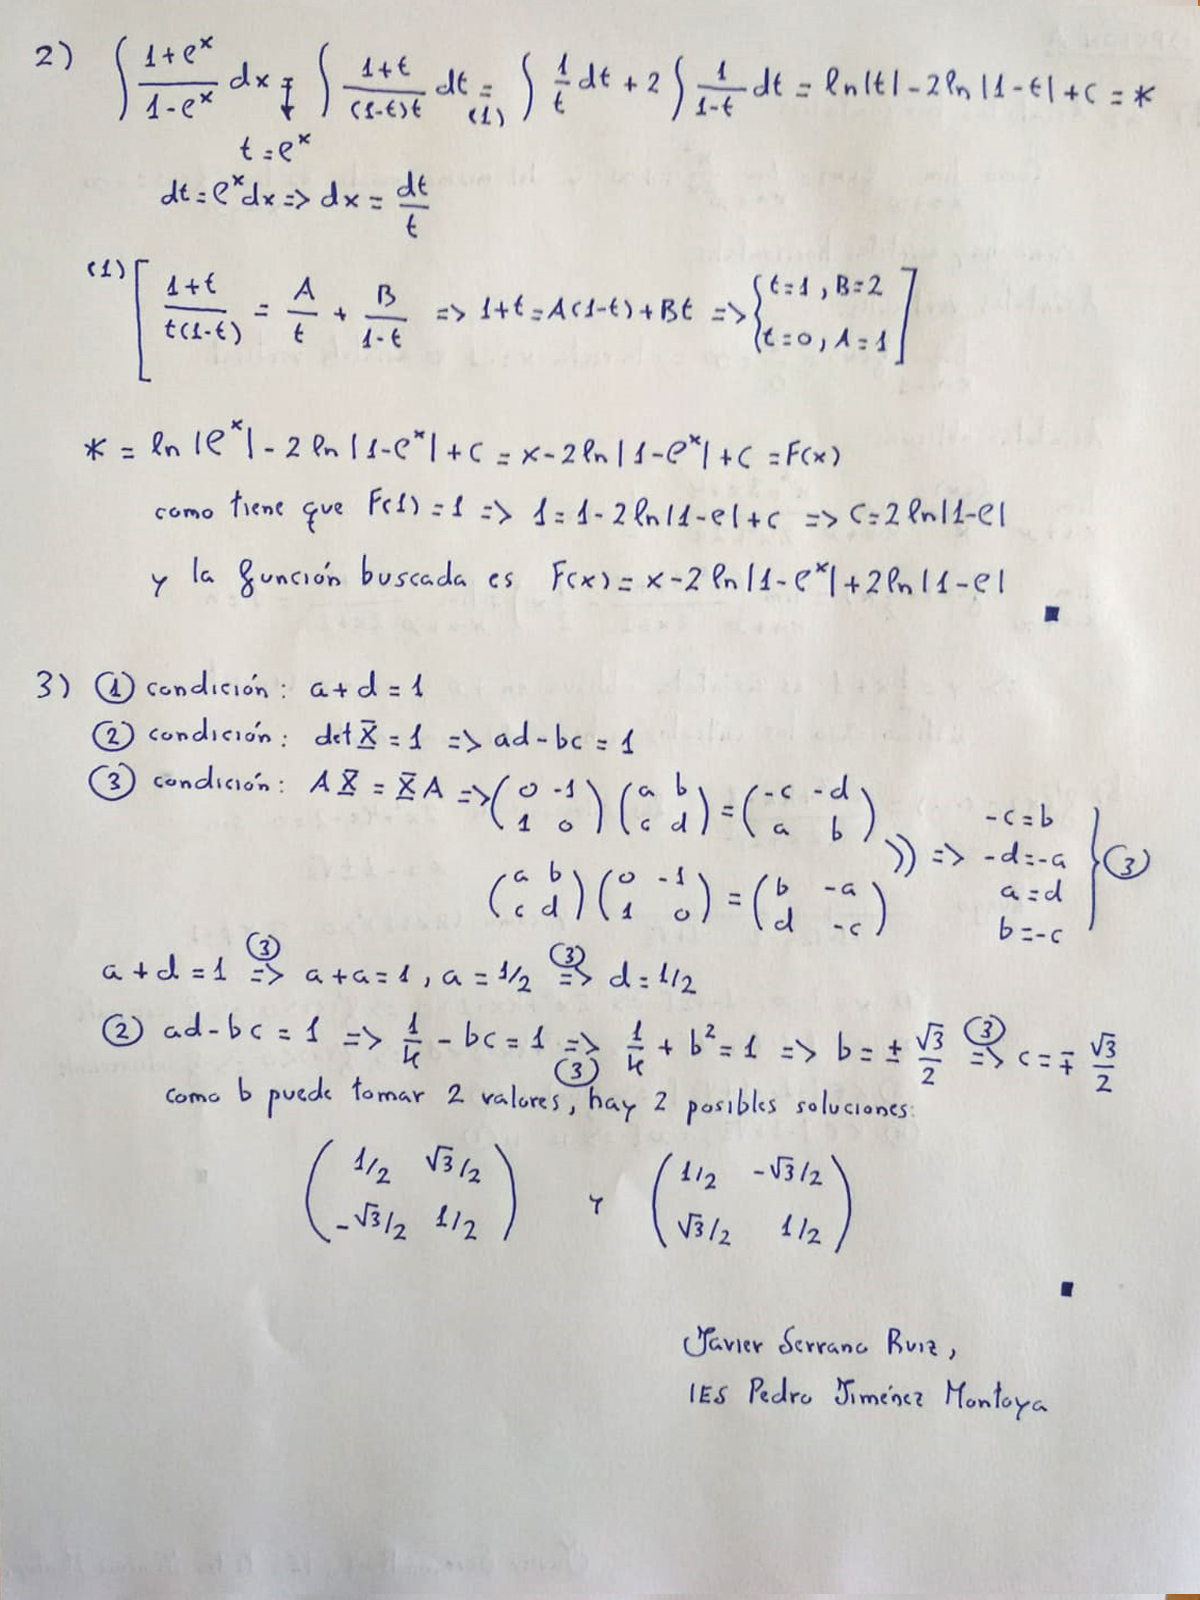 2) ∫ (1+e^x)/(1-e^x) dx = ∫ (1+t)/((1-t)t) dt =(1) ∫ 1/t dt + 2 ∫ 1/(1-t) dt = ln|t| - 2ln|1-t| + C = *
t = e^x
dt = e^x dx => dx = dt/t
(1) [ (1+t)/(t(1-t)) = A/t + B/(1-t) => 1+t = A(1-t) + Bt => { t=1, B=2 / t=0, A=1 ]
* = ln|e^x| - 2 ln|1-e^x| + C = x - 2ln|1-e^x| + C = F(x)
como tiene que F(1) = 1 => 1 = 1 - 2ln|1-e| + C => C = 2 ln|1-e|
y la función buscada es F(x) = x - 2 ln|1-e^x| + 2 ln|1-e|
3) ① condición: a + d = 1
② condición: det X = 1 => ad - bc = 1
③ condición: A X = X A => (0 -1 / 1 0) (a b / c d) = (-c -d / a b)
(a b / c d) (0 -1 / 1 0) = (b -a / d -c)
=> -c = b
-d = -a
a = d
b = -c } ③
a + d = 1 =>③ a + a = 1, a = 1/2 =>③ d = 1/2
② ad - bc = 1 => 1/4 - bc = 1 =>③ 1/4 + b² = 1 => b = ± √3/2 =>③ c = ∓ √3/2
como b puede tomar 2 valores, hay 2 posibles soluciones:
(1/2 √3/2 / -√3/2 1/2) y (1/2 -√3/2 / √3/2 1/2)
Javier Serrano Ruiz,
IES Pedro Jiménez Montoya